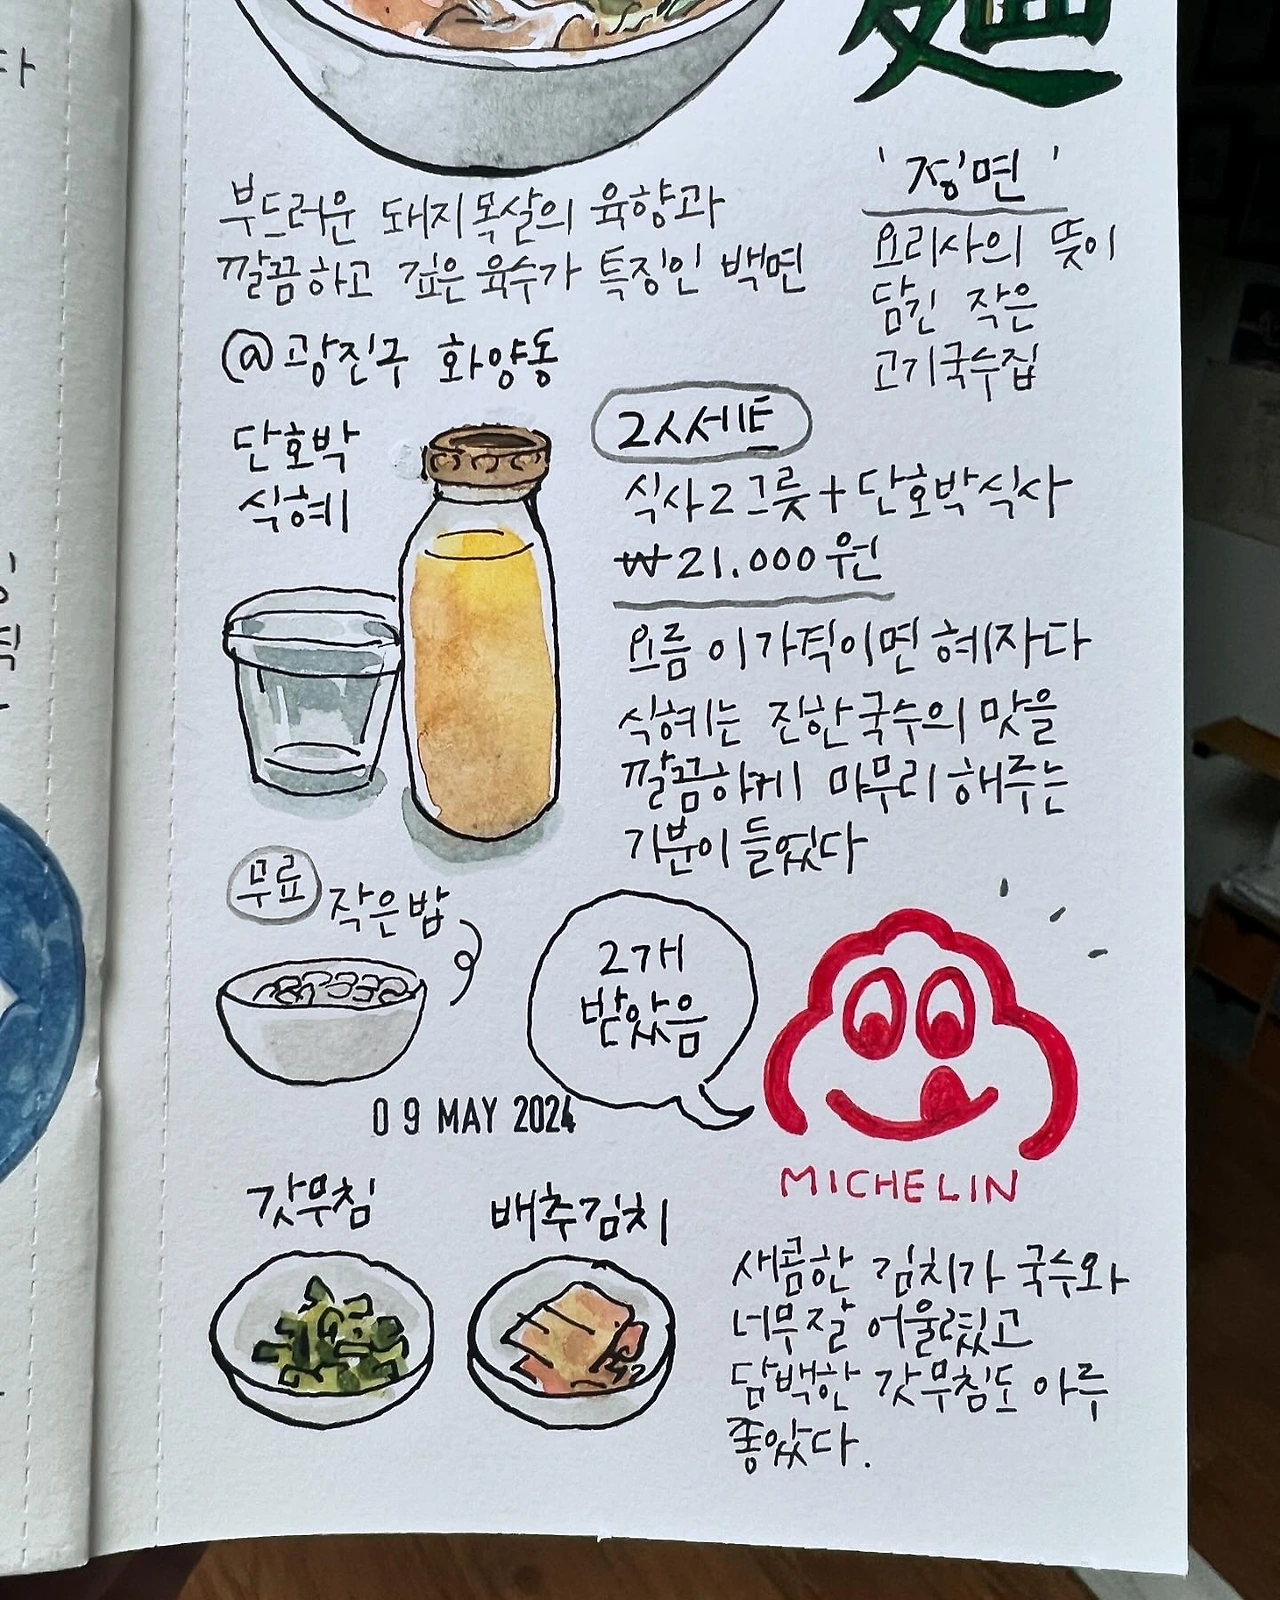 麵
'정면'
요리사의 뜻이
담긴 작은
고기국수집
부드러운 돼지목살의 육향과
깔끔하고 깊은 육수가 특징인 백면
@광진구 화양동
단호박
식혜
2人세트
식사2그릇+단호박식사
₩21.000원
요즘 이가격이면 혜자다
식혜는 진한국수의 맛을
깔끔하게 마무리해주는
기분이 들었다
무료 작은밥
2개
받았음
09 MAY 2024
MICHELIN
갓무침
배추김치
새콤한 김치가 국수와
너무잘 어울렸고
담백한 갓무침도 아주
좋았다.